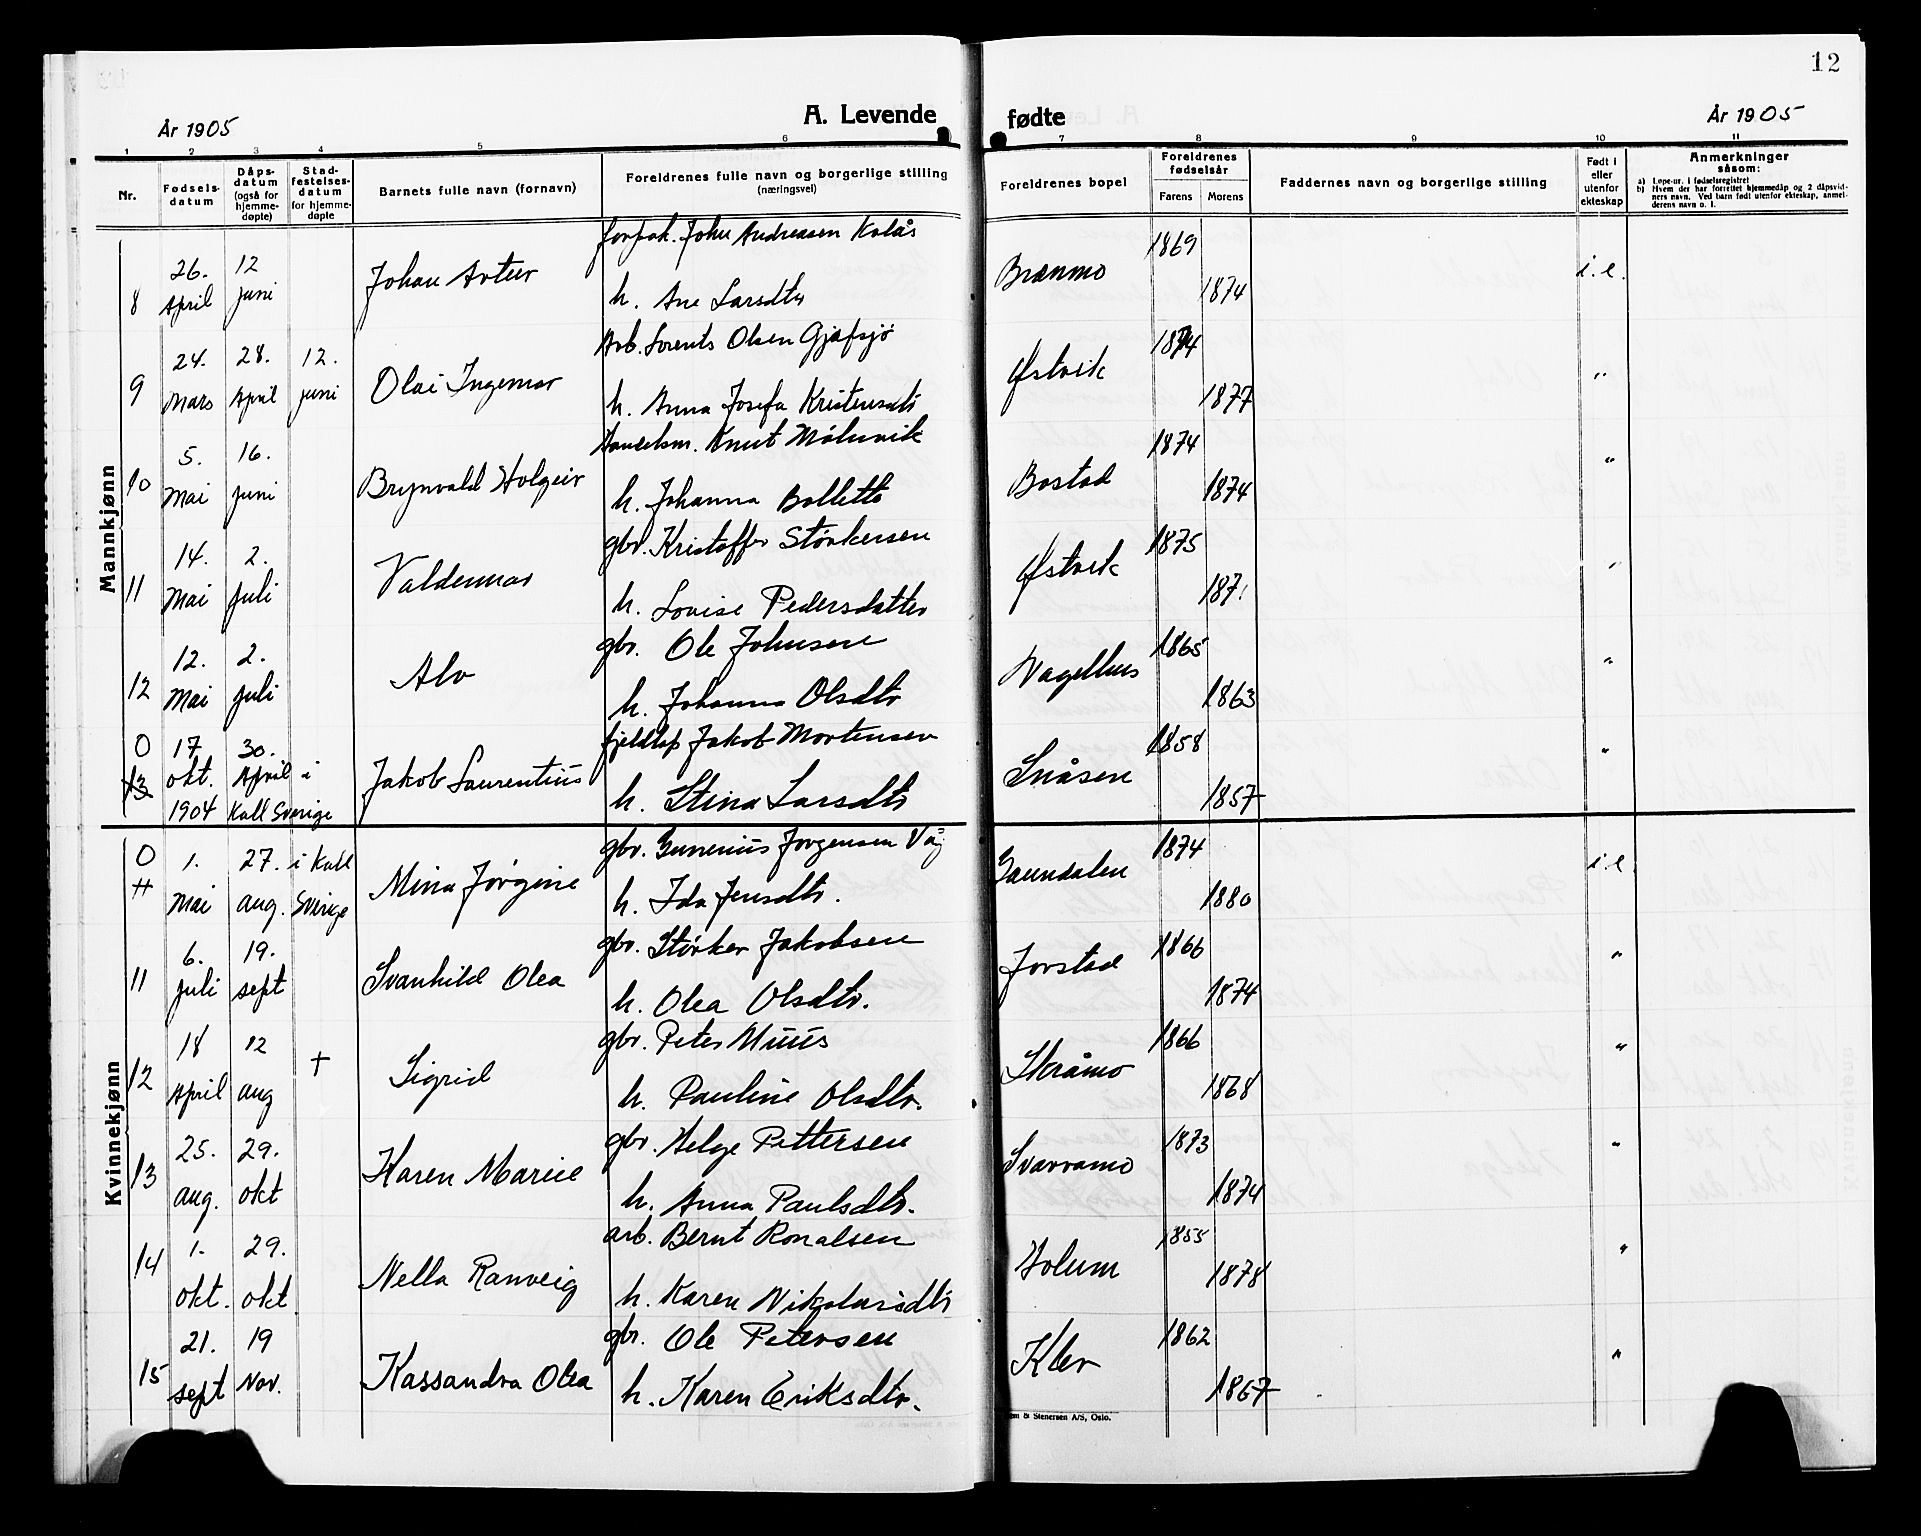 12
År 1905
A. Levende
fødte
År 1905
1 2 3 4 5 6 7 8 9 10 11
Nr.
Fødsels-
datum
Dåps-
datum
(også for
hjemme-
døpte)
Stad-
festelses-
datum
for hjemme-
døpte
Barnets fulle navn (fornavn)
Foreldrenes fulle navn og borgerlige stilling
(næringsvei)
Foreldrenes bopel
Foreldrenes
fødselsår
Farens
Morens
Faddernes navn og borgerlige stilling
Født i
eller
utenfor
ekteskap
Anmerkninger
såsom:
a) Løpe-nr. i fødselsregistret
b) Hvem der har forrettet hjemmedåp og 2 dåpsvid-
ners navn. Ved barn født utenfor ekteskap, anmel-
derens navn o. l.
Mannkjønn
forpak. Johan Andreasen Kolås 1869
26. 12 Johan Artur Brænmo i.e.
8 April juni h. Ane Larsdtr 1874
Arb. Lorents Olsen Gjæfsjø 1874
24. 28. 12. Olai Ingemar Østvik "
9 Mars April juni h. Anna Josefa Kristensdtr 1877
Handelsm. Knut Mølnvik 1874
5. 16. Brynvald Holgeir Bostad "
10 Mai juni h. Johanna 1874
gbr. Kristoffer Størkersen 1875
14. 2. Valdemar Østvik "
11 Mai juli h. Lovise Pedersdatter 187
gbr. Ole Johnsen 1865
12. 2. Alv Vagelhus "
12 Mai juli h. Johanna Olsdtr 1863
0 17 30. fjeldlap Jakob Mortensen 1858
13 okt. April i Jakob Laurentius Snåsen "
1904 Kall Sverige h. Stina Larsdtr 1857
Kvinnekjønn
0 1. 27. i Kall gbr. Gunerius Jørgensen 1874
11 Mai aug. Sverige Mina Jørgine Gaundalen i.e.
h. Ida Jensdtr. 1880
6. 19. gbr. Størker Jakobsen 1866
11 juli sept Svanhild Olea Jørstad "
h. Olea Olsdtr. 1874
18 12 gbr. Peter Muus 1866
12 April aug + Sigrid Skråmo "
h. Pauline Olsdtr. 1868
25. 29. gbr. Helge Pettersen 1873
13 aug. okt Karen Marie Svarvamo "
h. Anna Paulsdtr. 1874
1. 29. arb. Bernt Ronalsen 1855
14 okt. okt Nella Ranveig Holum "
h. Karen Nikolaisdtr 1878
21. 19 gbr. Ole Petersen 1862
15 sept Nov. Kassandra Olea Klev "
h. Karen Eriksdtr. 1867
& Stenersen A/S, Oslo.